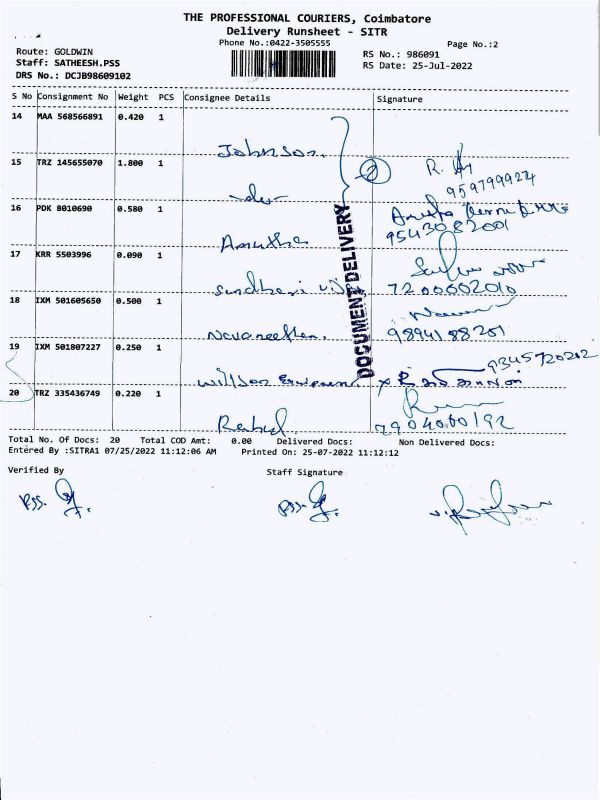 THE PROFESSIONAL COURIERS, Coimbatore
Delivery Runsheet - SITR
Phone No.:0422-3505555
Page No.:2
Route: GOLDWIN
RS No.: 986091
Staff: SATHEESH.PSS
RS Date: 25-Jul-2022
DRS No.: DCJB98609102
S No Consignment No Weight PCS Consignee Details Signature
14 MAA 568566891 0.420 1
Johnson.
15 TRZ 145655070 1.800 1
2
R.
9597999274
16 PDK 8010690 0.580 1
Amutha
9543082001
17 KRR 5503996 0.090 1
Sundhari
7200002010
18 IXM 501605650 0.500 1
Navaneethan.
9894188251
DOCUMENT DELIVERY
19 IXM 501807227 0.250 1
9345720202
Willson
20 TRZ 335436749 0.220 1
Rahul
7904060192
Total No. Of Docs: 20 Total COD Amt: 0.00 Delivered Docs: Non Delivered Docs:
Entered By :SITRA1 07/25/2022 11:12:06 AM Printed On: 25-07-2022 11:12:12
Verified By Staff Signature
PSS. PSS.